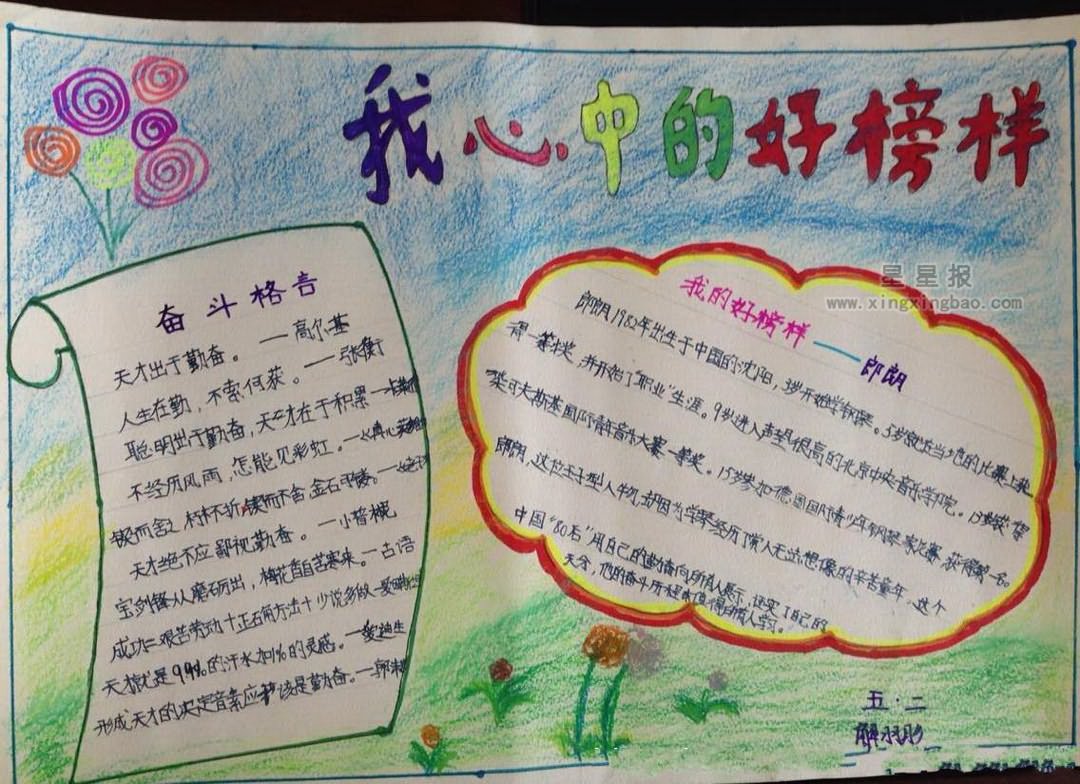 我心中的好榜样
奋斗格言
天才出于勤奋。——高尔基
人生在勤，不索何获。——张衡
聪明出于勤奋，天才在于积累
不经历风雨，怎能见彩虹。—《真心英雄
锲而舍之朽木不折，锲而不舍金石可镂。
天才绝不应鄙视勤奋。——小普林
宝剑锋从磨砺出，梅花香自苦寒来。—古语
成功=艰苦劳动十正确方法十少说多做—爱
天才就是99%的汗水加1%的灵感。—爱迪生
形成天才的决定音素应该是勤奋。—郭沫
星星报
www.xingxingbao.com
我的好榜样——郎朗
郎朗1982年出生于中国的沈阳，3岁开始学钢琴。5岁就在当地的比赛上获
得一等奖，并开始了"职业"生涯。9岁进入声望很高的北京中央音乐学院。13岁获"柴
柴可夫斯基国际青年音乐大赛一等奖。15岁参加德国国际青少年钢琴家比赛，获得第一名。
郎朗，这位王子型人物，却因为学琴经历了常人无法想像的辛苦童年，这个
中国"80后"用自己的勤奋向所有人展示，证实了自己的
天分，他的奋斗历程值得人学习。
五·二